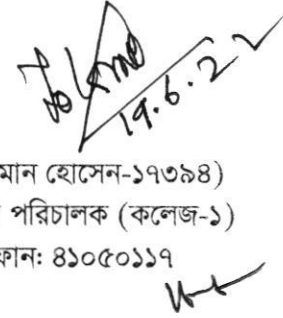 19.6.22
মান হোসেন-১৭৩৯৪)
পরিচালক (কলেজ-১)
ফোন: ৪১০৫০১১৭